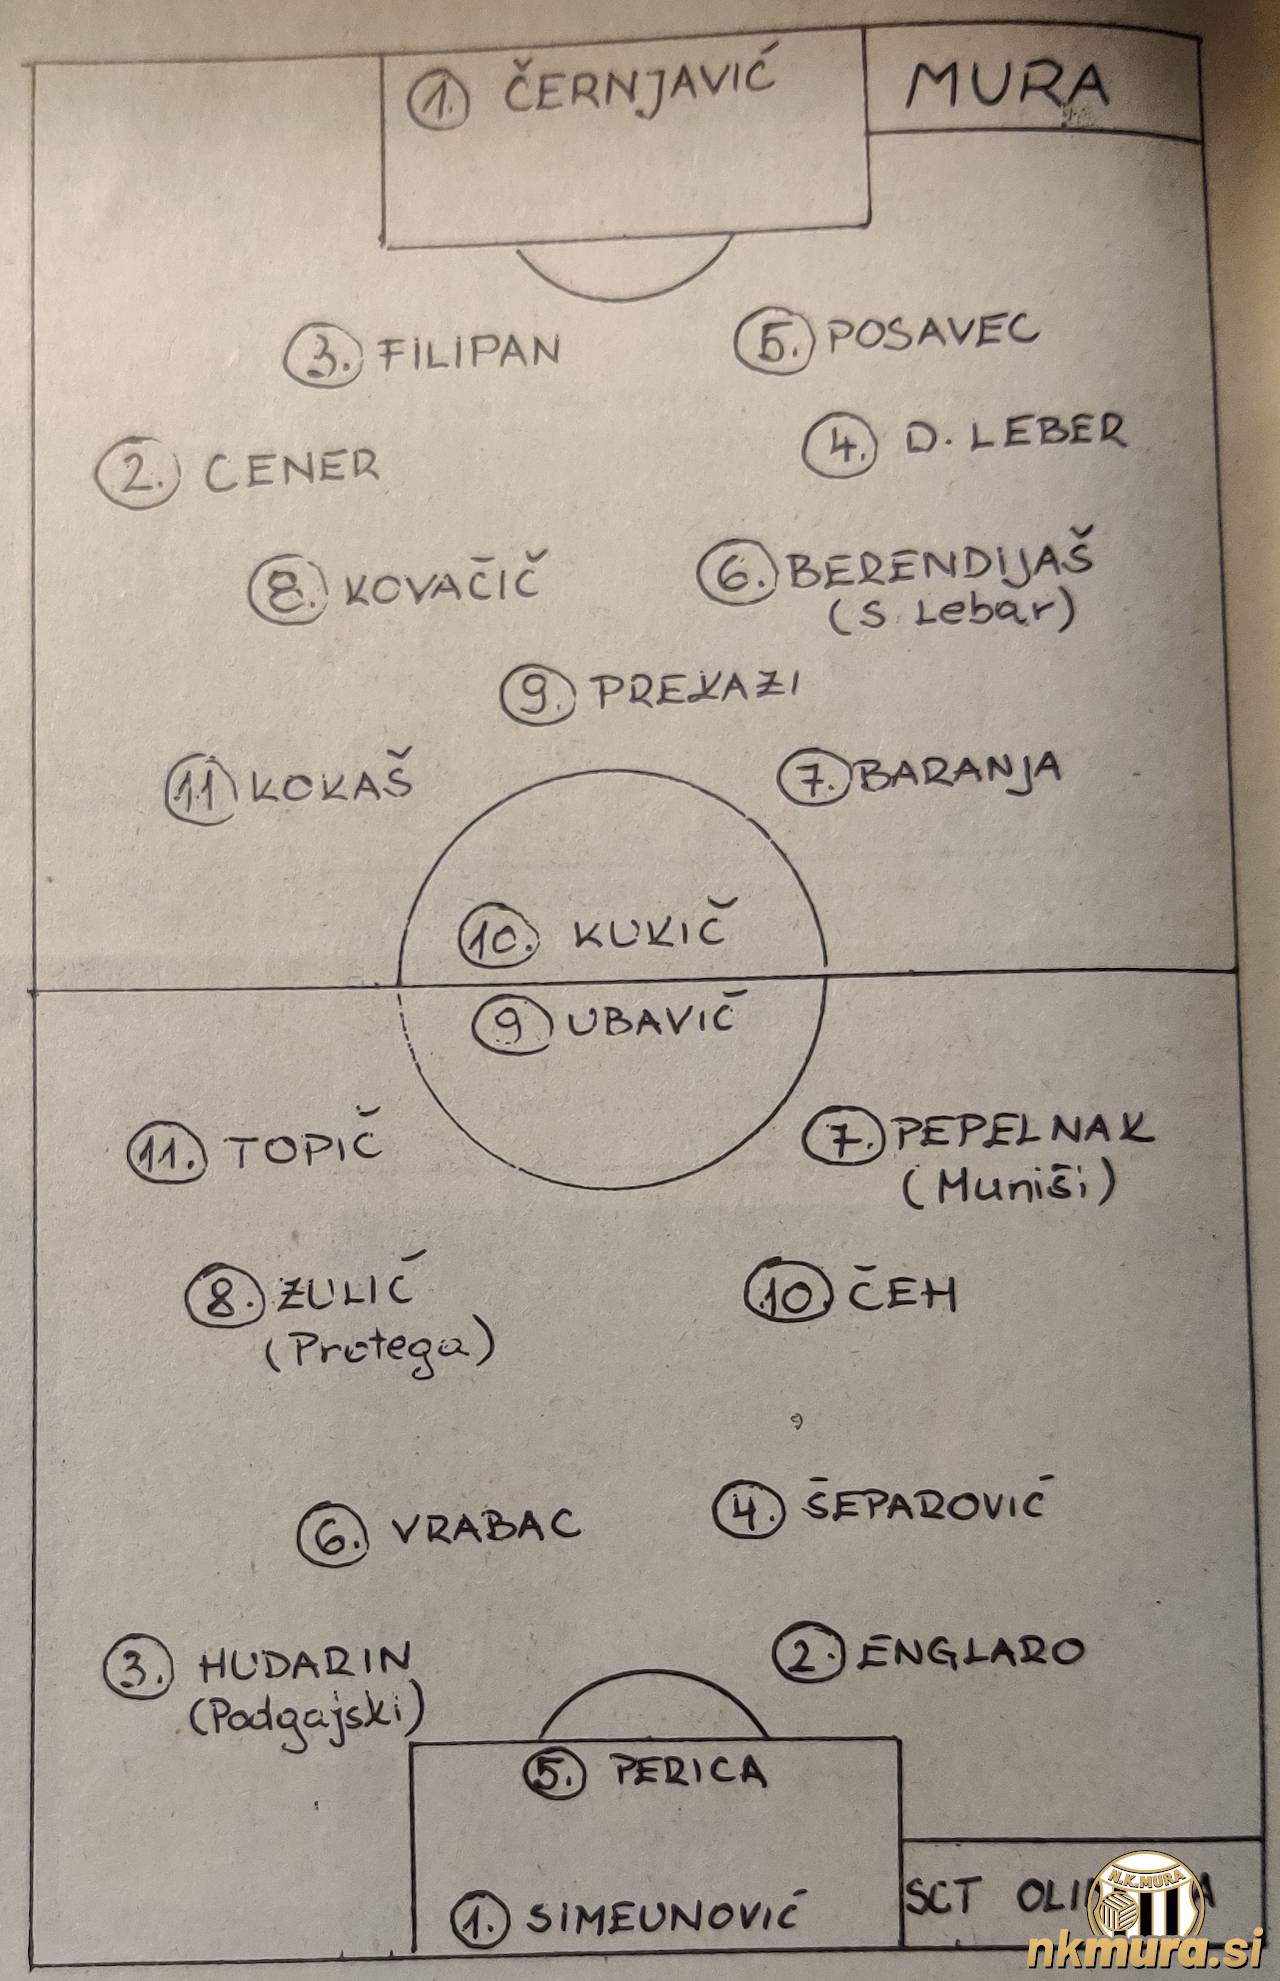 1. ČERNJAVIĆ
MURA
3. FILIPAN
5. POSAVEC
2. CENER
4. D. LEBER
8. KOVAČIČ
6. BERENDIJAŠ
(S. Lebar)
9. PREKAZI
11 KOKAŠ
7. BARANJA
10. KUKIČ
9 UBAVIČ
11. TOPIČ
7. PEPELNAK
(Muniši)
8. ZULIĆ
(Protega)
10 ČEH
6. VRABAC
4. ŠEPAROVIĆ
3. HUDARIN
(Podgajski)
2. ENGLARO
5. PERICA
1. SIMEUNOVIĆ
SCT
N.K. MURA
nkmura.si